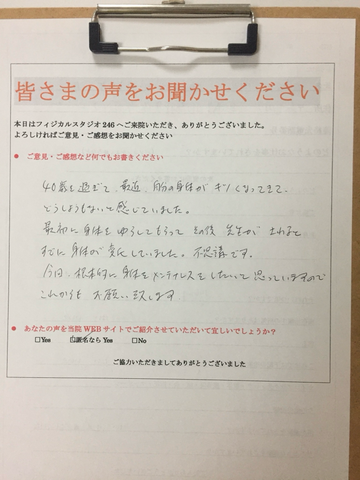 皆さまの声をお聞かせください
本日はフィジカルスタジオ246へご来院いただき、ありがとうございました。
よろしければご意見・ご感想をお聞かせください
● ご意見・ご感想など何でもお書きください
40歳を過ぎて、最近、自分の身体がキツくなってきて、
どうしようもないと感じていました。
最初に身体をゆらしてもらって その後 先生が されると
すぐに身体が変化していました。不思議です。
今後、根本的に身体をメンテナンスをしたいって思っていますので
これからも お願い致します
● あなたの声を当院WEBサイトでご紹介させていただいて宜しいでしょうか?
□Yes □匿名なら Yes □No
ご協力いただきましてありがとうございました